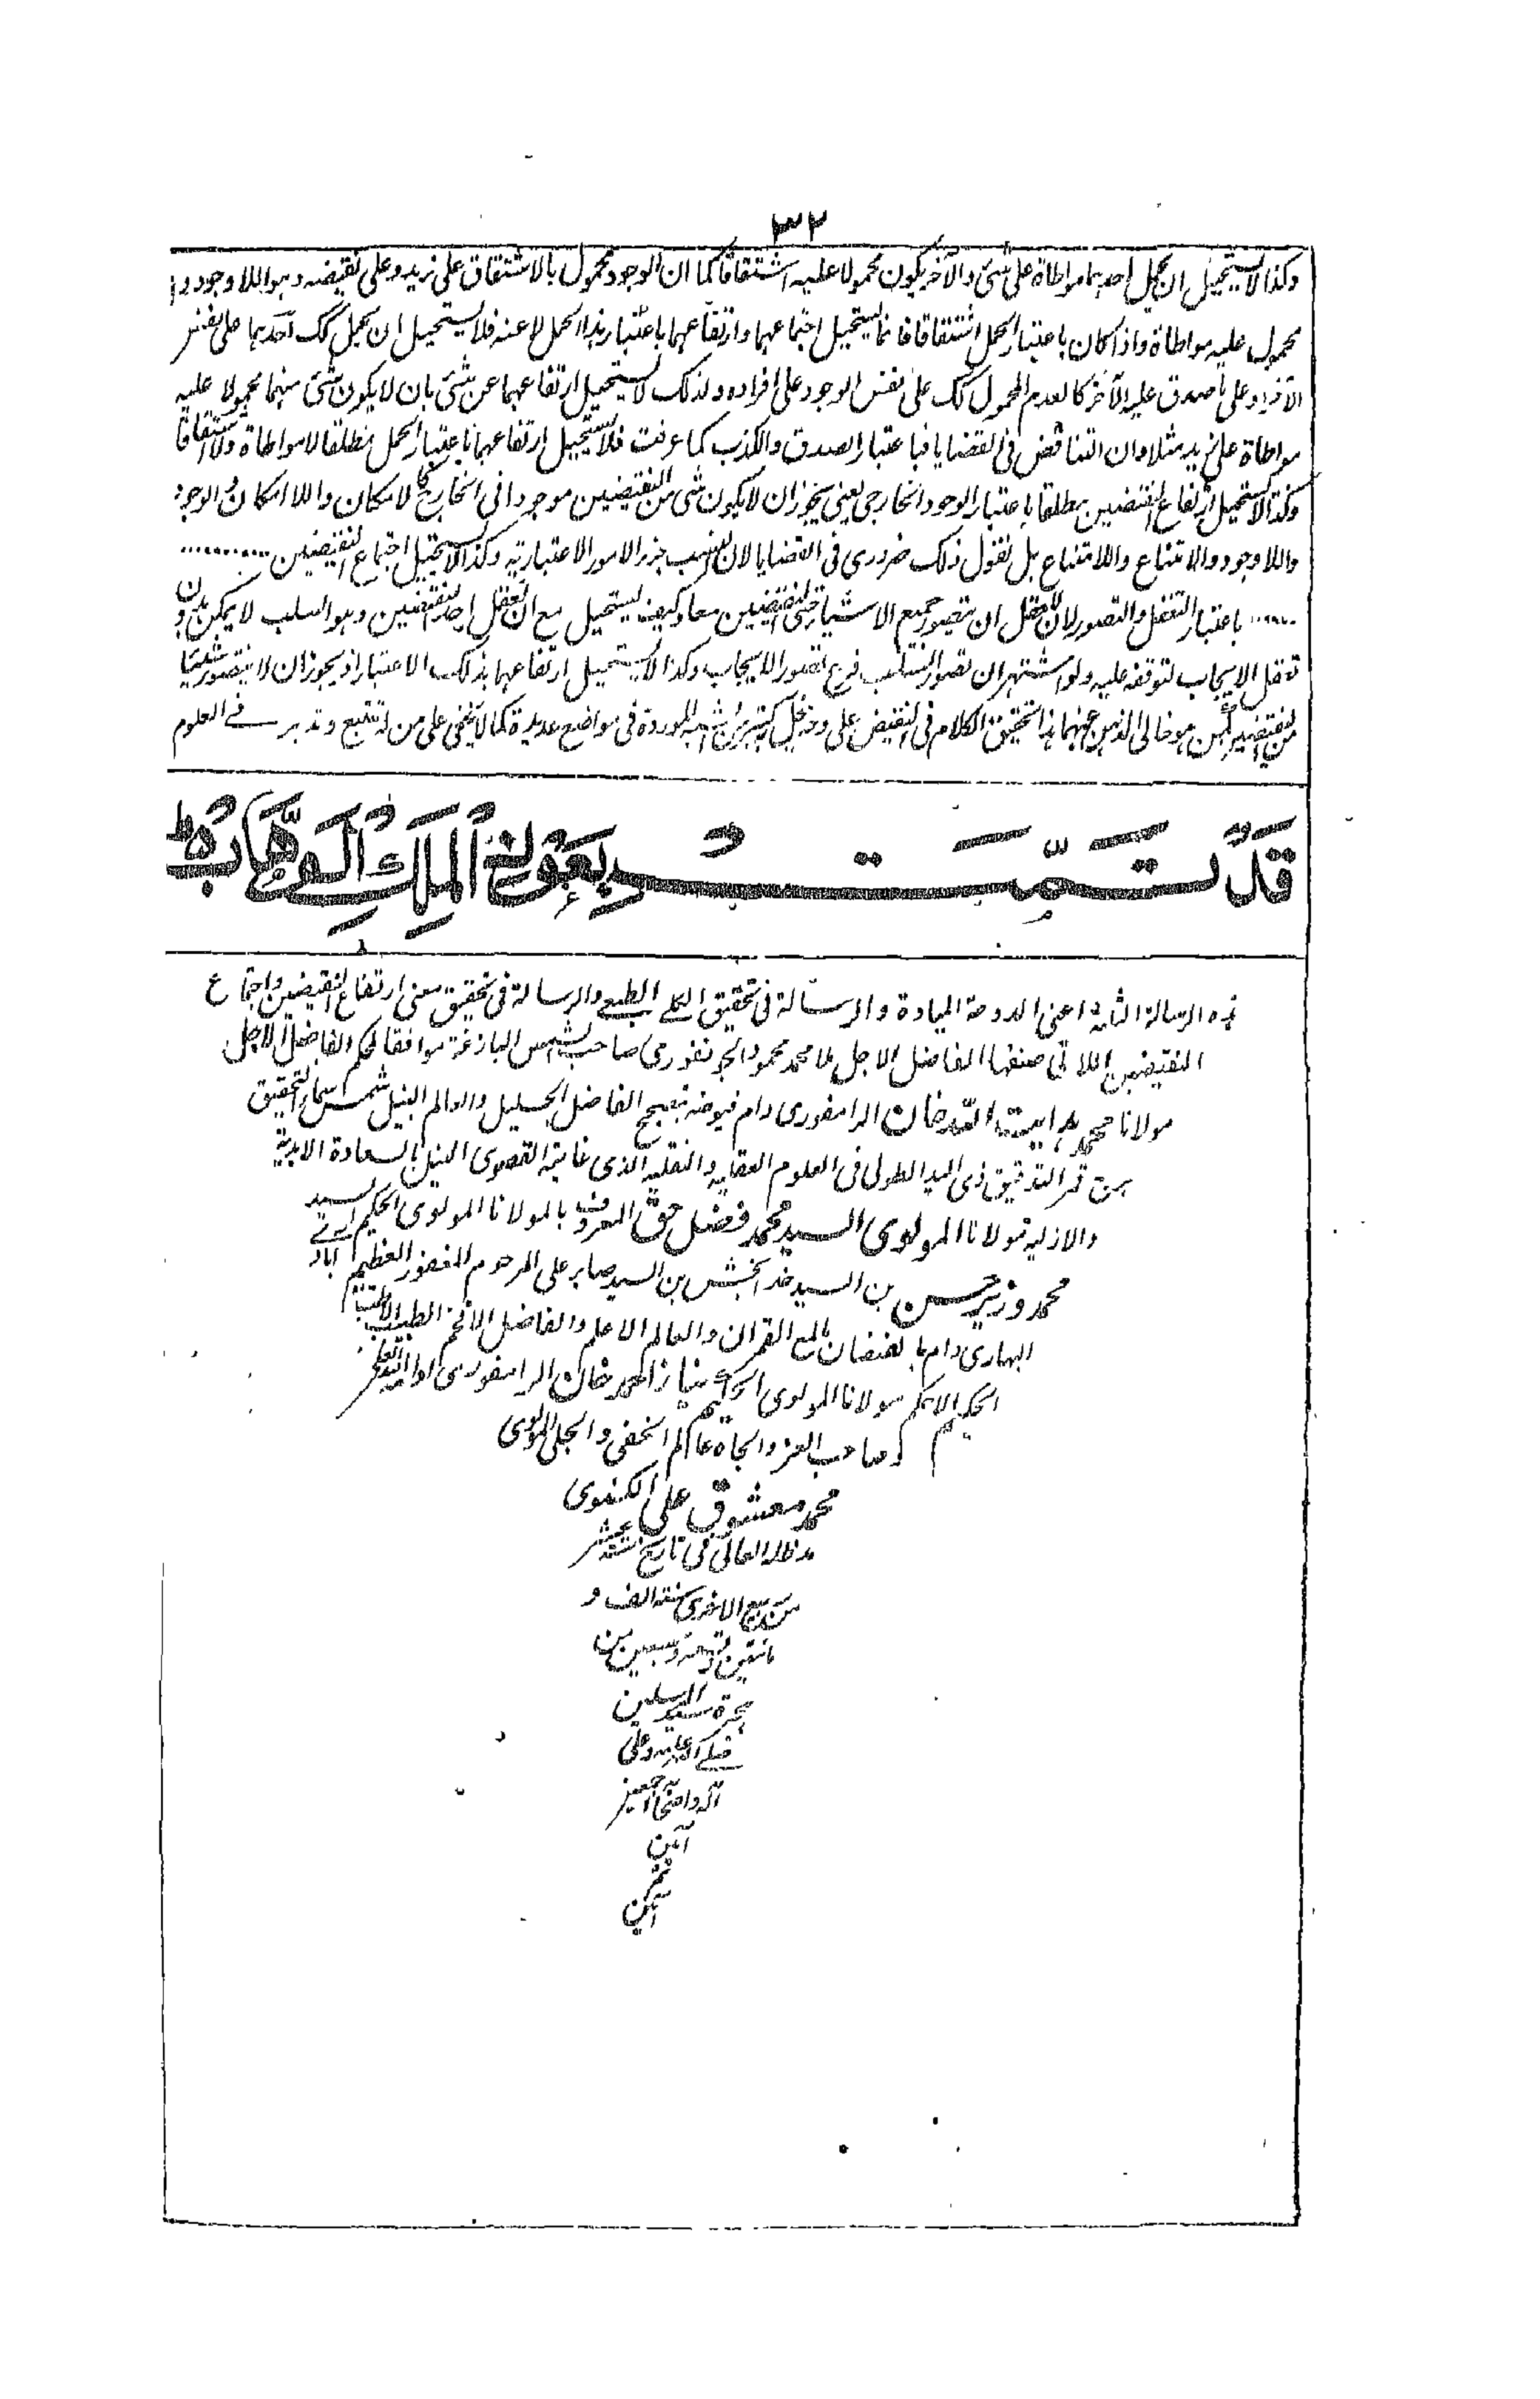 ٣٢
وكذا لا يستحيل ان يحمل احدهما مواطاة على شئ والآخر يكون محمولا عليه اشتقاقا كما ان الوجود محمول بالاشتقاق على زيد وعلى نقيضه وهو اللا وجود
محمول عليه مواطاة واذا كان باعتبار الحمل اشتقاقا فانما يستحيل اجتماعهما وارتفاعهما باعتبار هذا الحمل لا عنه فلا يستحيل ان يحمل كك احدهما على نفس
الآخر وعلى ما صدق عليه الآخر كالعدم المحمول كك على نفس الوجود على افراده ولذلك لا يستحيل ارتفاعهما عن شئ بان لا يكون شئ منهما محمولا عليه
مواطاة على زيد مثلا وان التناقض فى القضايا فباعتبار الصدق والكذب كما عرفت فلا يستحيل ارتفاعهما باعتبار الحمل مطلقا لا مواطاة ولا اشتقاقا
وكذا لا يستحيل ارتفاع النقيضين مطلقا باعتبار الوجود الخارجى يعنى يجوز ان لا يكون شئ من النقيضين موجودا فى الخارج كالامكان واللا امكان والوجود
واللا وجود والامتناع واللا امتناع بل نقول ذلك ضرورى فى القضايا لان النسب جزء الامور الاعتبارية وكذا لا يستحيل اجتماع النقيضين ..........
...... باعتبار التعقل والتصور لان للعقل ان يتصور جميع الاشياء حتى النقيضين معا وكيف يستحيل مع ان تعقل احد النقيضين وهو السلب لا يمكن بدون
تعقل الايجاب لتوقفه عليه ولو اشتهر ان تصور السلب فرع تصور الايجاب وكذا لا يستحيل ارتفاعهما بذلك الاعتبار اذ يجوز ان لا يتصور شيئا
من النقيضين من هو خالى الذهن عنهما هذا تحقيق الكلام فى النقيض على وجه يحل كثير من الشبه الموردة فى مواضع عديدة كما لا يخفى على من تتبع وتدبر فى العلوم
قَدْ تَمَّتْ بِعَوْنِ الْمَلِكِ الْوَهَّابِ
هذه الرسالة الثانية اعنى الدوحة الميادة والرسالة فى تحقيق الكلى الطبعى والرسالة فى تحقيق معنى ارتفاع النقيضين واجتماع
النقيضين اللاتى صنفها الفاضل الاجل ملا محمد محمود الجونفورى صاحب الشمس البازغة موافقا لحكم الفاضل الاجل
مولانا محمد هدايت الله خان الرامفورى دام فيوضه بتصحيح الفاضل الجليل والعالم النبيل شمس سماء التحقيق
برج قمر التدقيق ذى اليد الطولى فى العلوم العقليه والنقليه الذى غايته القصوى النيل بالسعادة الابدية
والازليه مولانا المولوى السيد محمد فضل حق المعروف بالمولانا المولوى الحكيم السيد
محمد وزير حسن بن السيد خدا بخش بن السيد صابر على المرحوم المغفور العظيم آبادى
البهارى دام بالفيضان لامع القمران والعالم الاعلم والفاضل الافخم الطبيب
الحكيم الاحكم مولانا المولوى الحكيم نياز احمد خان الرامفورى
وصاحب العز والجاه عالم الخفى والجلى المولوى
محمد معشوق على الكنهوى
مد ظله العالى فى تاريخ
من ربيع الاخرى سنة الف و
مائتين وسبعين من
هجرة سيد المرسلين
صلى الله عليه وعلى
آله واصحابه اجمعين
آمين
ثم
آمين